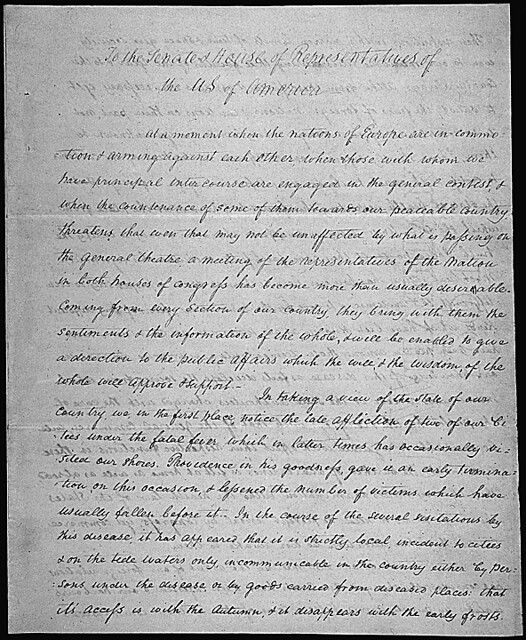 To the Senate & House of Representatives of
the U.S of America
At a moment when the nations of Europe are in commo-
tion & arming against each other, when those with whom we
have principal intercourse are engaged in the general contest, &
when the countenance of some of them towards our peaceable country
threatens, that even that may not be unaffected by what is passing on
the general theatre a meeting of the representatives of the Nation
in both houses of Congress has become more than usually desireable.
Coming from every section of our country they bring with them the
sentiments & the information of the whole, & will be enabled to give
a direction to the public affairs which the will & the wisdom, of the
whole will approve & support.
In taking a view of the state of our
Country we in the first place notice the late affliction of two of our Ci-
tees under the fatal fever which in latter times has occasionally vi-
sited our shores. Providence in his goodness gave it an early termina-
tion on this occasion & lessened the number of victims which have
usually fallen before it. In the course of the several visitations by
this disease, it has appeared that it is strictly local incident to citees
& on the tide waters only incommunicable in the country either by per-
sons under the disease or by goods carried from diseased places: that
its access is with the Autumn, & it disappears with the early frosts.